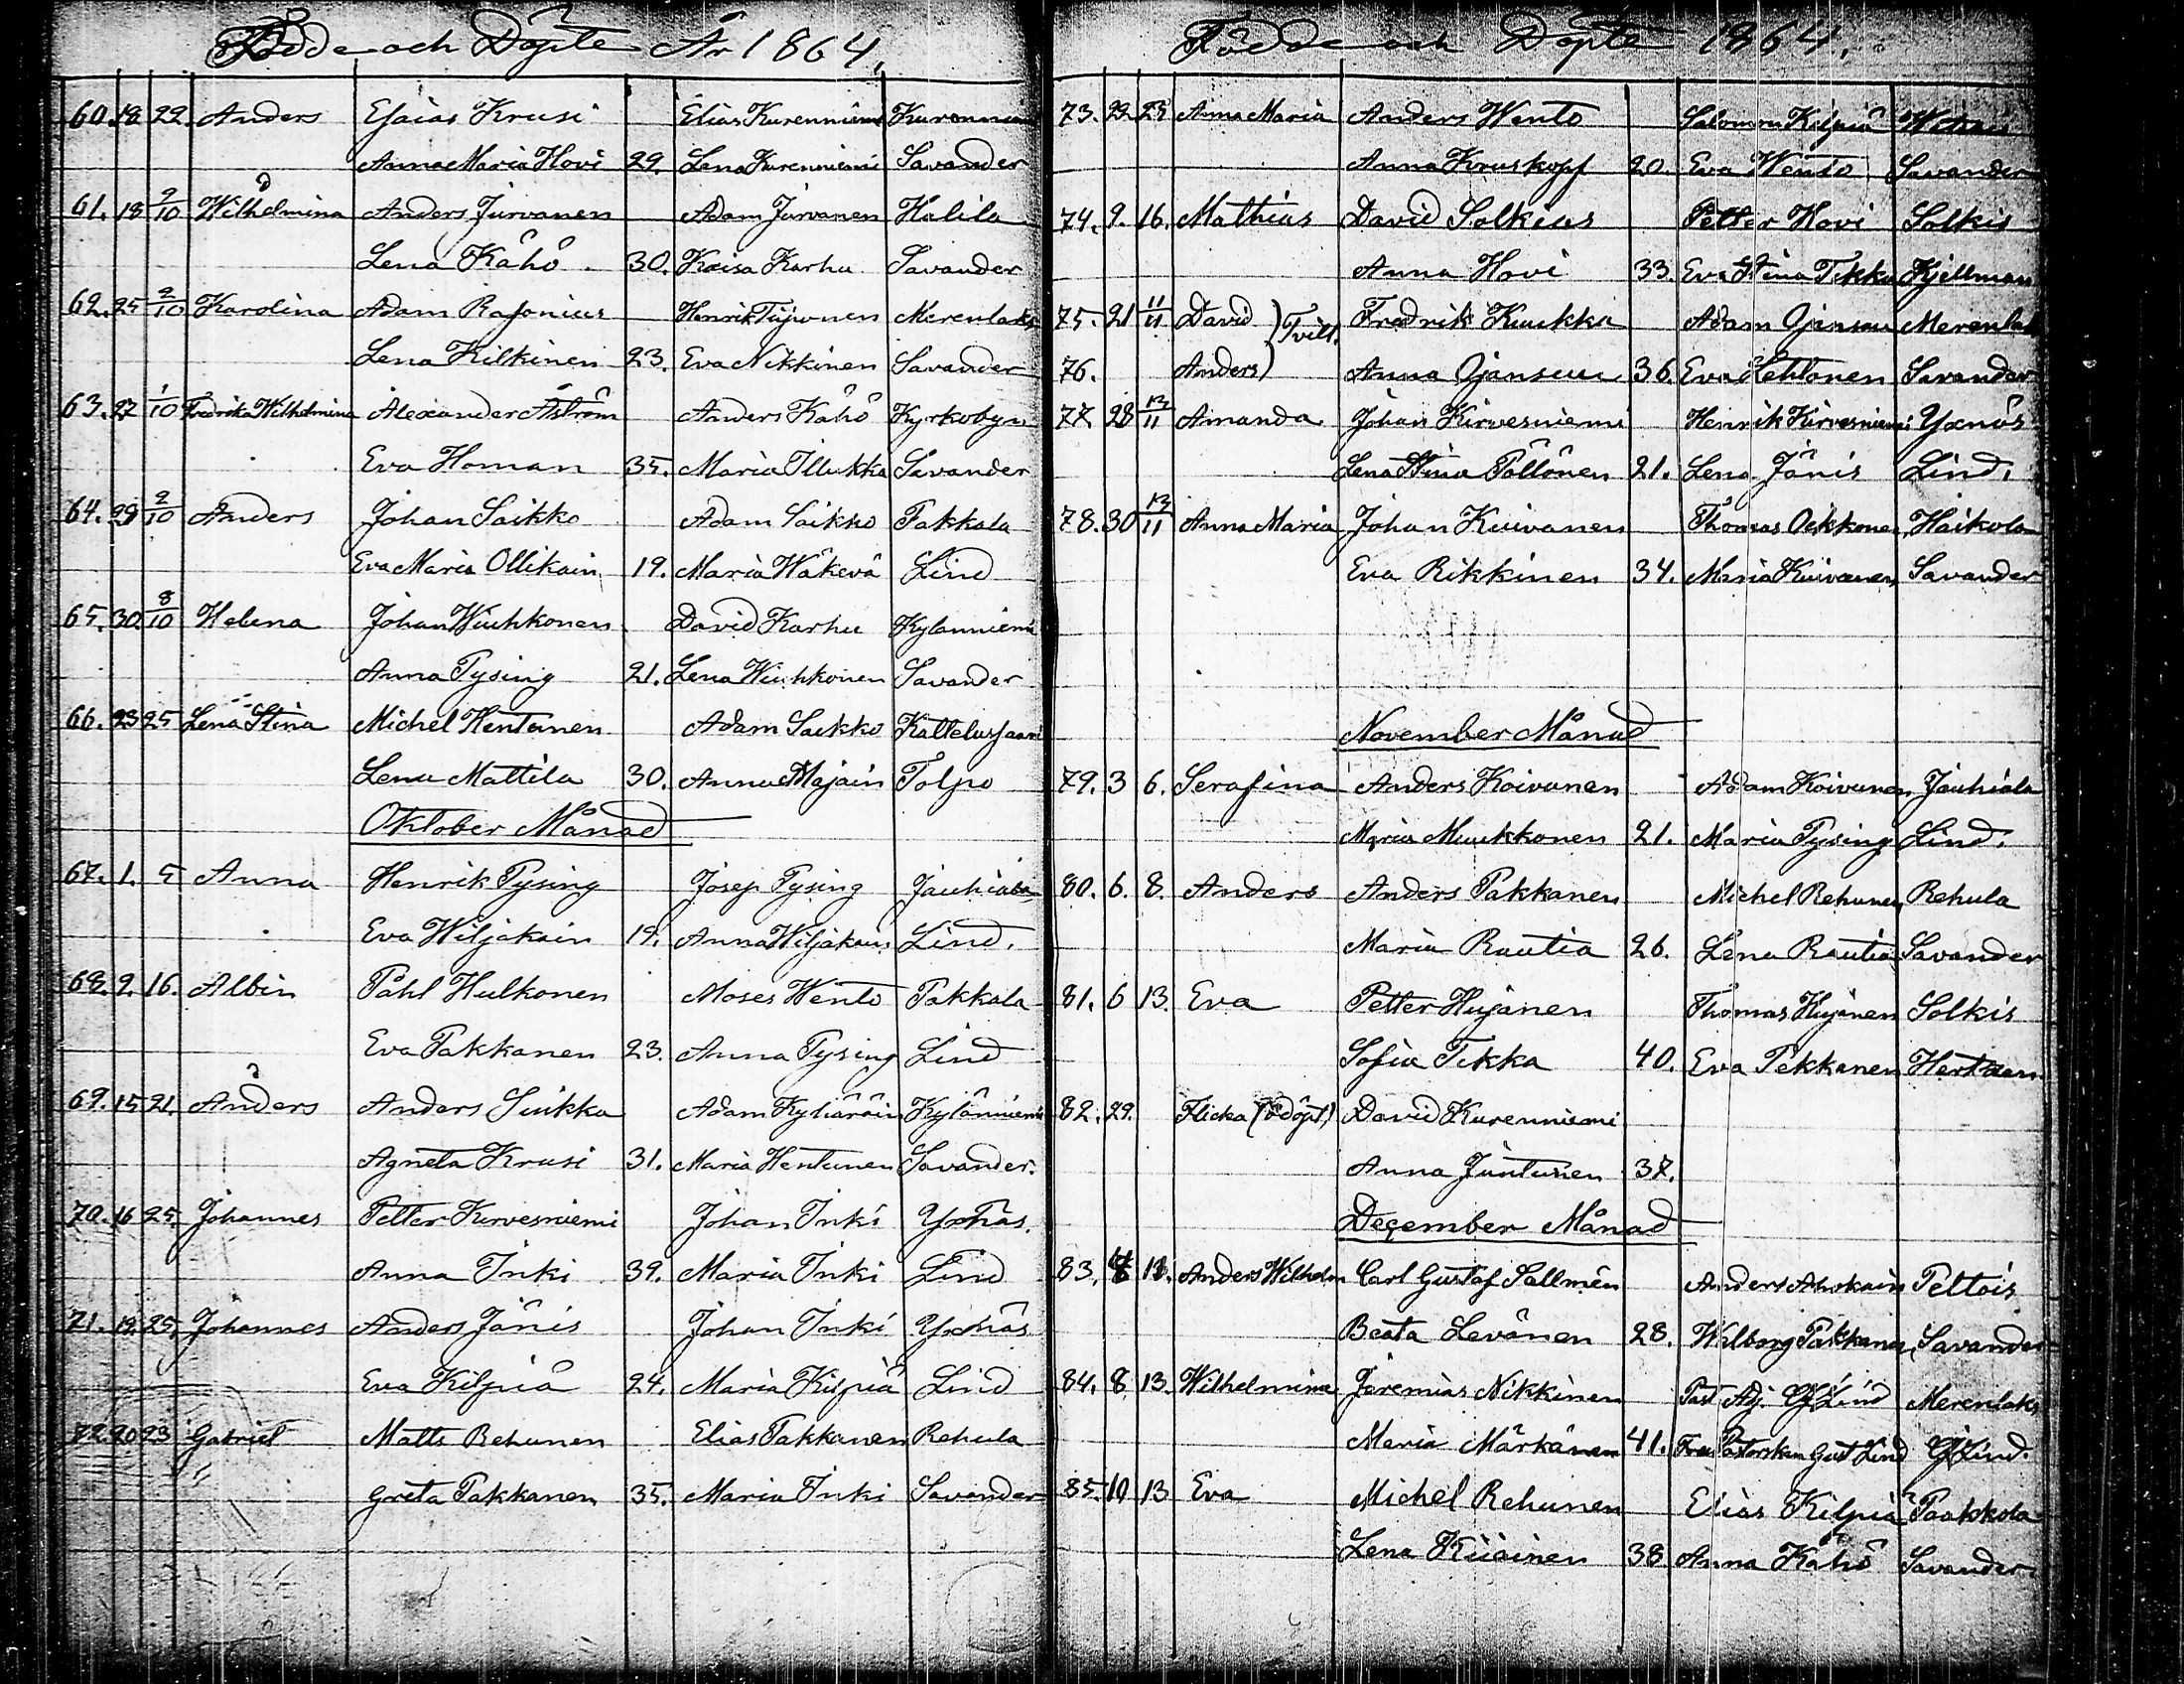 Födde och Döpte År 1864.
60. 18 22. Anders Esaias Krusi Elias Kurenniemi Kurenniemi
Anna Maria Hovi 29. Lena Kurenniemi Savander
61. 18 2/10 Wilhelmina Anders Jurvanen Adam Jurvanen Halila
Lena Kähö 30. Kaisa Karhu Savander
62. 25 2/10 Karolina Adam Rasonius Henrik Merenlaks
Lena Kilkinen 23. Eva Nikkinen Savander
63. 27 1/10 Fredrika Wilhelmina Alexander Åström Anders Kähö Kyrkobyn
Eva Homan 35. Maria Illukka Savander
64. 29 2/10 Anders Johan Saikko Adam Saikko Pakkala
Eva Maria Ollikain 19. Maria Wäkevä Lind
65. 30. 8/10 Helena Johan Wiuhkonen David Karhu Kylänniemi
Anna Pysing 21. Lena Wiuhkonen Savander
66. 23 25 Lena Stina Michel Hentunen Adam Saikko Kattelussaari
Lena Mattila 30. Anna Majain Tolpo
Oktober Månad
67. 1. 5 Anna Henrik Pysing Josep Pysing Jauhiala
Eva Wiljakain 19. Anna Wiljakain Lind.
68. 9. 16. Albin Påhl Hulkonen Moses Wento Pakkala
Eva Pakkanen 23. Anna Pysing Lind
69. 15 21. Anders Anders Suikka Adam Kyliäräin Kylänniemi
Agneta Krusi 31. Maria Hentunen Savander.
70. 16 25. Johannes Petter Kirvesniemi Johan Inki Yxnäs.
Anna Inki 39. Maria Inki Lind
71. 19. 25. Johannes Anders Jänis Johan Inki Yxnäs
Eva Kilpiä 24. Maria Kilpiä Lind
72. 20 23 Gabriel Matts Rehunen Elias Pakkanen Rehula
Greta Pakkanen 35. Maria Inki Savander
Födde och Döpte 1864.
73. 22. 23 Anna Maria Anders Wento Salomon Kilpiä
Anna Kruskopf 20. Eva Wento Savander
74. 9. 16. Mathias David Solkius Petter Hovi Solkis
Anna Hovi 33. Eva Stina Tikka Kjellman
75. 21 11/11 David Tvill. Fredrik Kuukka Adam Ojansuu Merenlaks
76. Anders Anna Ojansuu 36. Eva Lehtonen Savander
77. 28 13/11 Amanda Johan Kirvesniemi Henrik Kirvesniemi Yxnäs
Lena Stina Pöllönen 21. Lena Jänis Lind.
78. 30 13/11 Anna Maria Johan Kuivanen Thomas Ockkonen Haikola
Eva Rikkinen 34. Maria Kuivanen Savander
November Månad
79. 3 6. Serafina Anders Koivunen Adam Koivunen Jauhiala
Maria Muukkonen 21. Maria Pysing Lind.
80. 6. 8. Anders Anders Pakkanen Michel Rehunen Rehula
Maria Rautia 26. Lena Rautia Savander
81. 6 13. Eva Petter Hujanen Thomas Hujanen Solkis
Sofia Tikka 40. Eva Pekkanen
82. 29. Flicka (odöpt) David Kurenniemi
Anna Juntunen 37.
December Månad
83. 13. Anders Wilhelm Carl Gustaf Sallmén Anders Ahokain Peltois
Beata Levänen 28. Walborg Pakkanen Savander
84. 8 13. Wilhelmina Jeremias Nikkinen Past Adj. Lind Merenlaks
Maria Märkänen 41. Fru Pastorskan Gust Lind Lind.
85. 10 13 Eva Michel Rehunen Elias Kilpiä Paakkola
Lena Kiiainen 38 Anna Kähö Savander